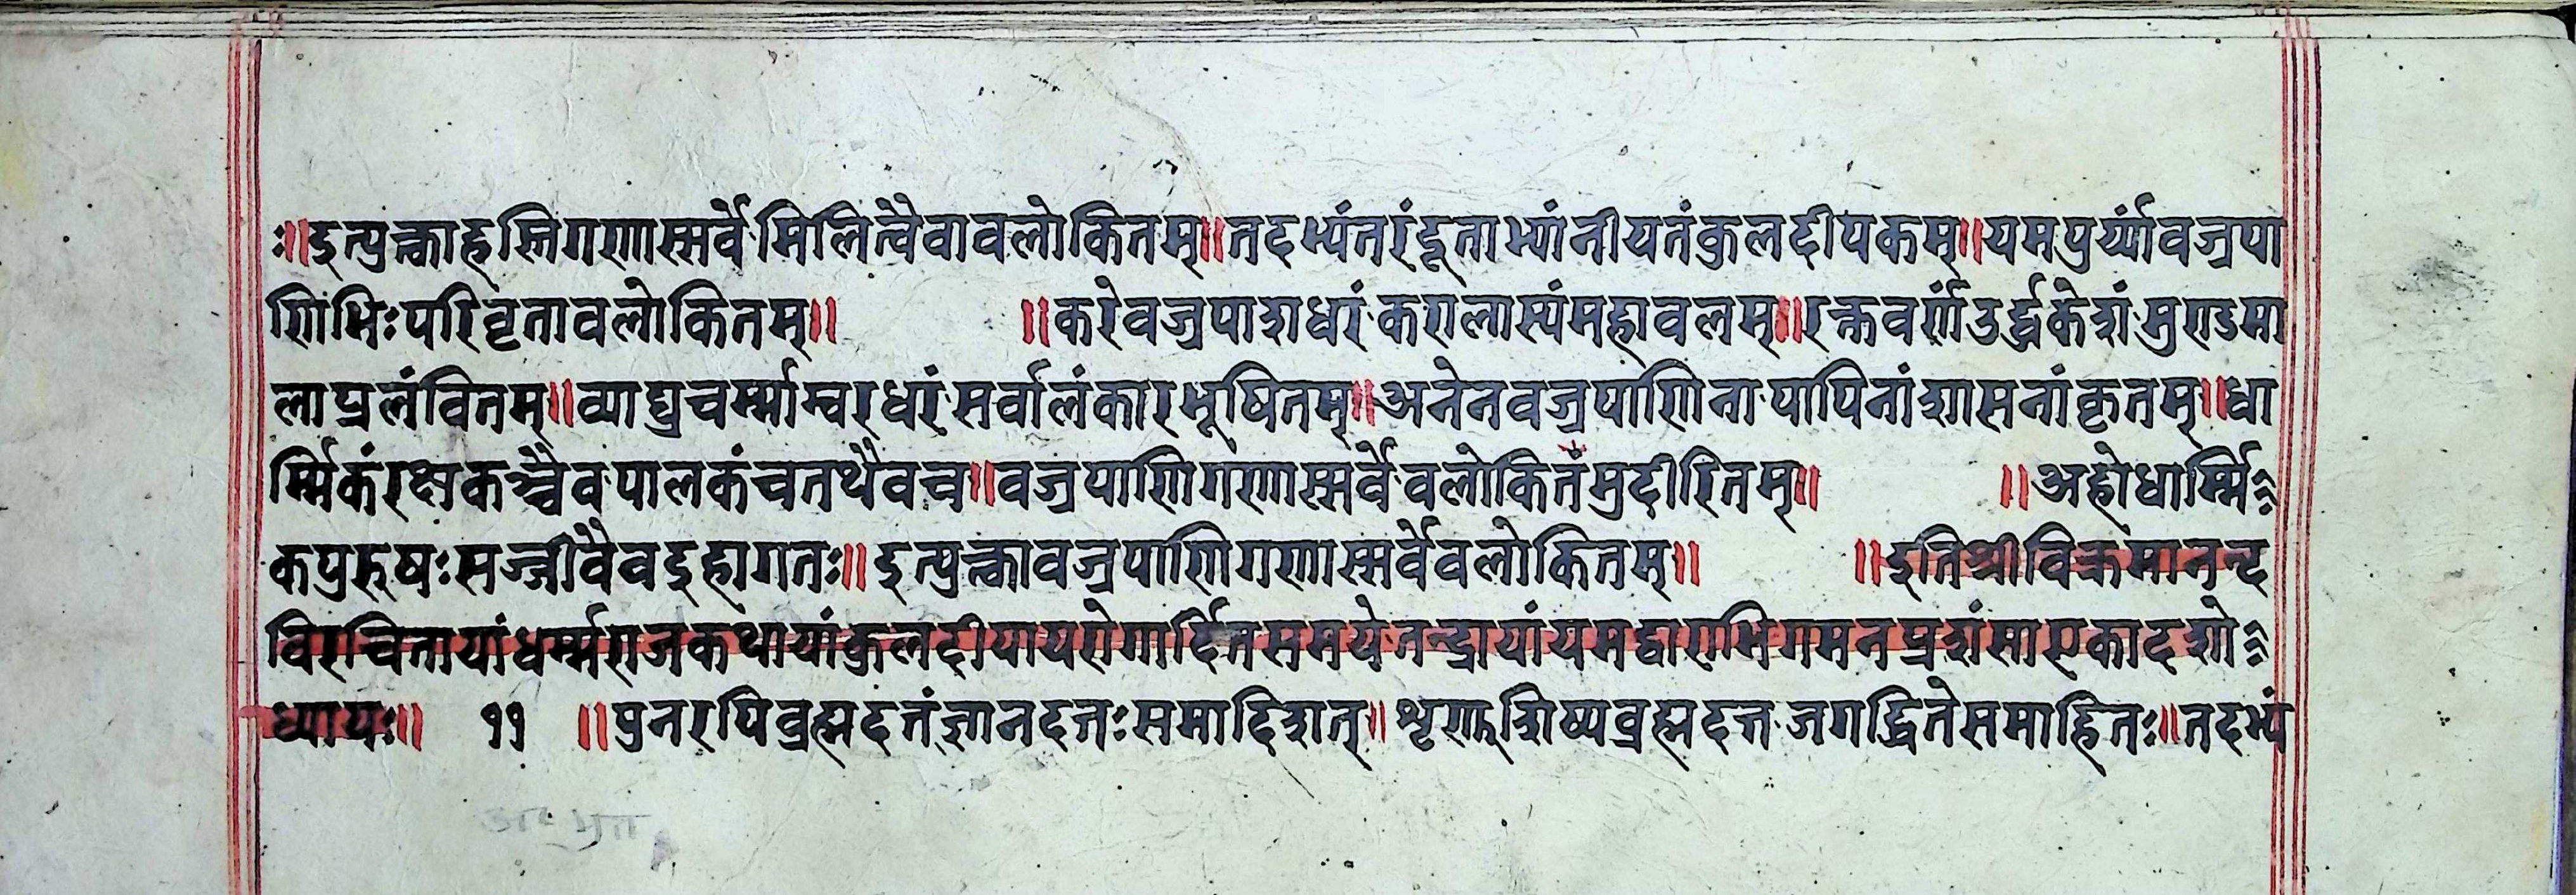 ः॥इत्युक्त्वाहस्तिगणास्सर्वेमिलित्वैवावलोकितम्॥तदभ्यंतरंदूताभ्यांनीयतंकुलदीपकम्॥यमपुर्य्यांवज्रपा
णिभिःपरिवृतावलोकितम्॥ ॥करेवज्रपाशधरंकरालास्यंमहावलम्॥रक्तवर्णंउर्द्धकेशंमुण्डमा
लाप्रलंवितम्॥व्याघ्रचर्म्माम्वरधरंसर्वालंकारभूषितम्॥अनेनवज्रपाणिनापापिनांशासनांकृतम्॥धा
र्म्मिकंरक्षकञ्चैवपालकंचतथैवच॥वज्रपाणिगणास्सर्वेवलोकितंमुदीरितम्॥ ॥अहोधार्म्मि
कपुरुषःसज्जीवैवइहागतः॥इत्युक्त्वावज्रपाणिगणास्सर्वेवलोकितम्॥ ॥इतिश्रीविक्रमानन्द
विरचितायांधर्म्मराजकथायांकुलदीयायरोगार्दितसमयेतन्द्रायांयमद्वाराभिगमनप्रशंसाएकादशो
ध्यायः॥ ११ ॥पुनरपिव्रह्मदत्तंज्ञानदत्तःसमादिशत्॥शृणुशिष्यव्रह्मदत्तजगद्धितेसमाहितः॥तदभ्यं